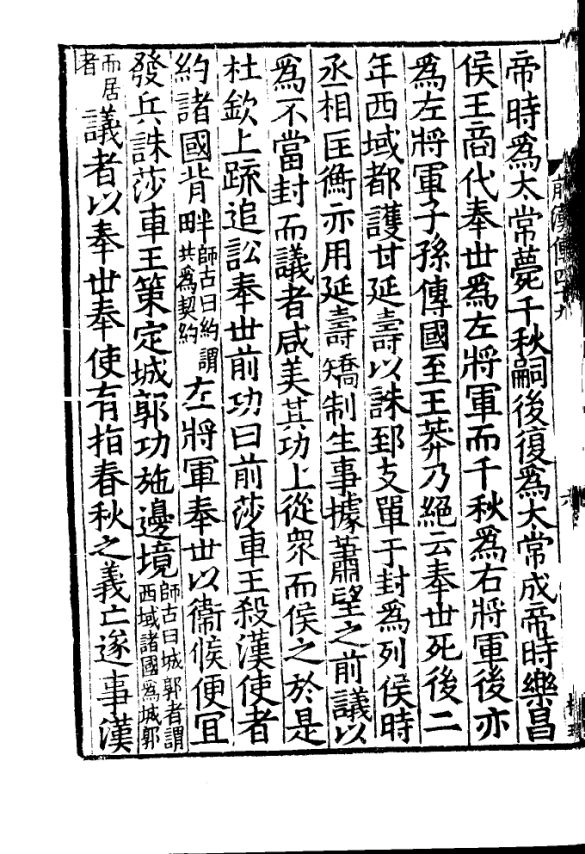 帝時爲太常薨千秋嗣後復爲太常成帝時樂昌
侯王商代奉丗爲左將軍而千秋爲右將軍後亦
爲左將軍子孫傳國至王莽乃絕云奉丗死後二
年西域都護甘延壽以誅郅支單于封爲列侯時
丞相匡衡亦用延壽矯制生事據蕭望之前議以
爲不當封而議者咸美其功上從衆而侯之於是
杜欽上疏追訟奉丗前功曰前莎車王殺漢使者
約諸國背畔師古曰約謂共爲契約左將軍奉丗以衞候便宜
發兵誅莎車王策定城郭功施邊境師古曰城郭者謂西域諸國爲城郭
而居者議者以奉丗奉使有指春秋之義亡遂事漢